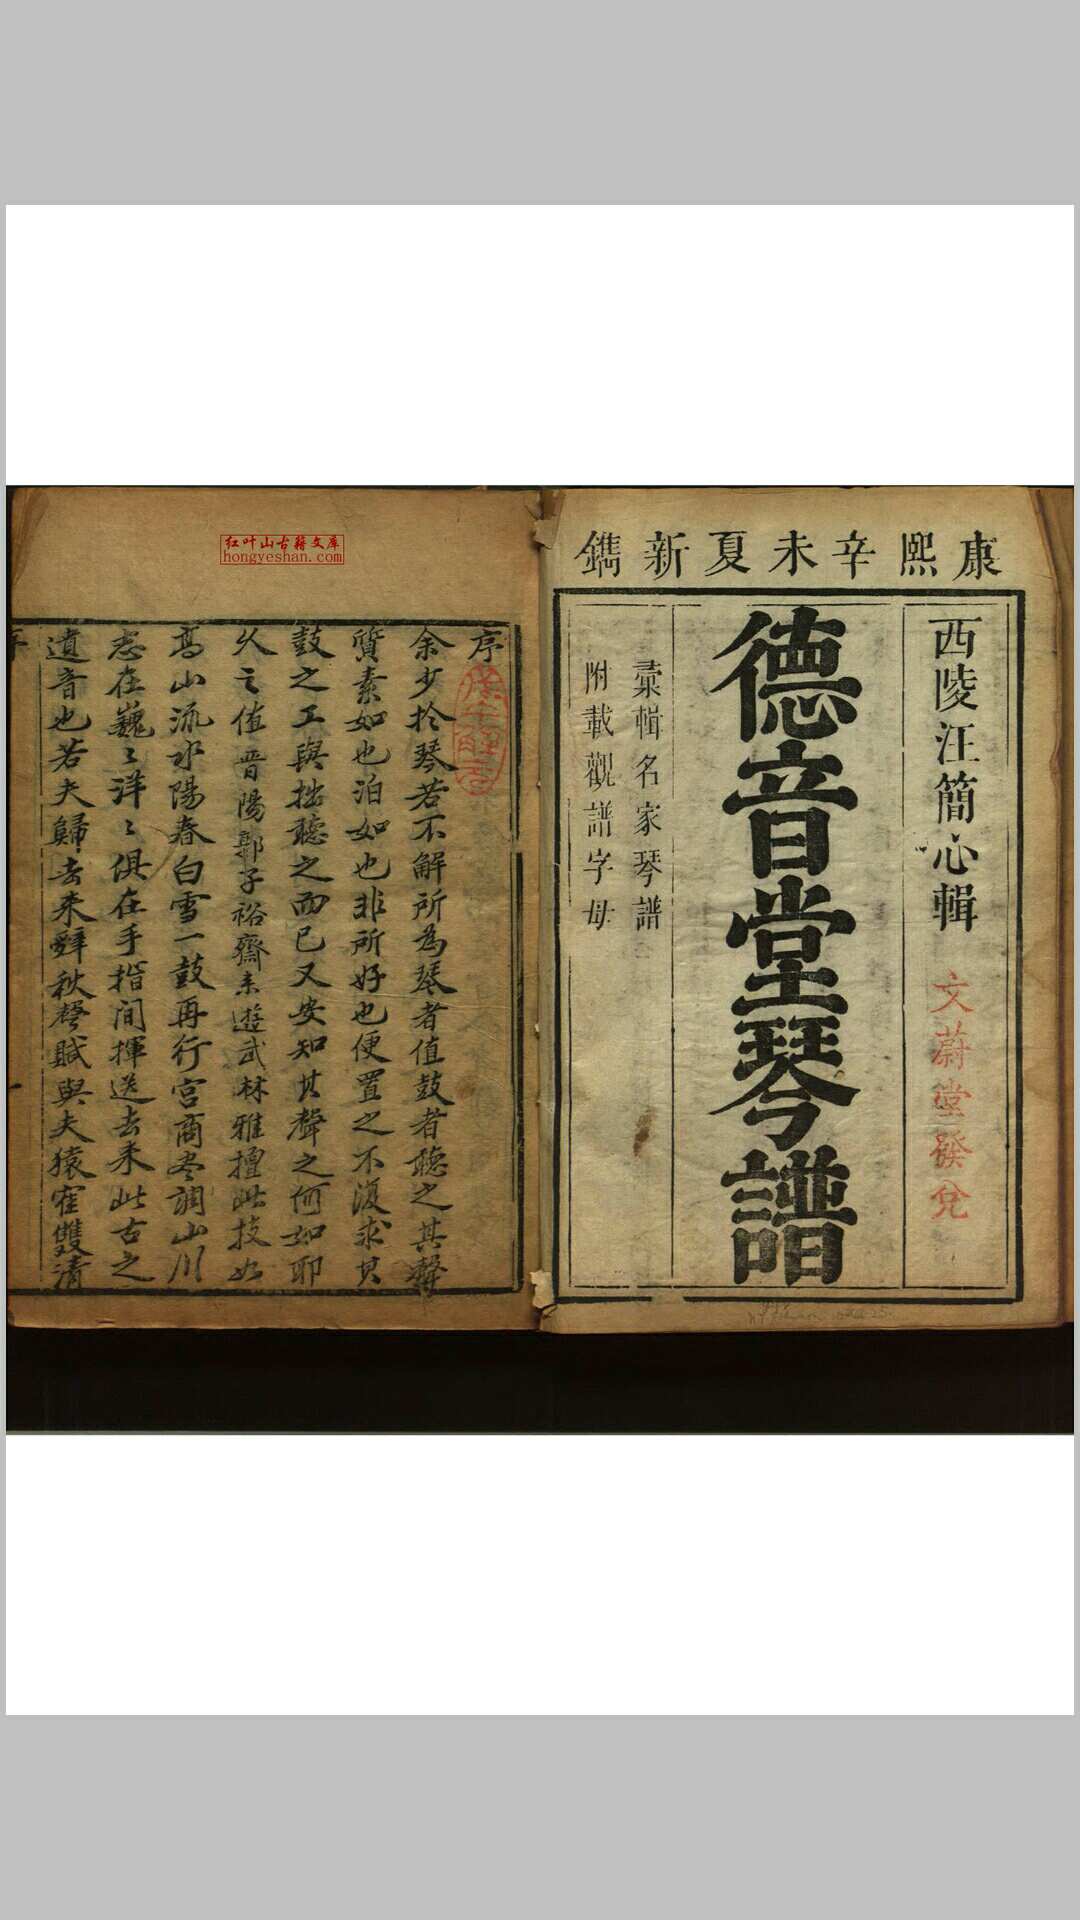 康熙辛未夏新鐫
西陵汪簡心輯
文蔚堂發兌
德音堂琴譜
彙輯名家琴譜
附載觀譜字母
红叶山古籍文库
hongyeshan.com
序
余少於琴若不解所為琴者值鼓者聽之其聲
質素如也泊如也非所好也便置之不復求其
鼓之工與拙聽之而已又安知其聲之何如耶
久之值晋陽郭子裕齋来遊武林雅擅此技如
髙山流水陽春白雪一鼓再行宫商叶調山川
志在巍〻洋〻俱在手指间揮送去来此古之
遺音也若夫歸去来辭秋聲賦與夫猿崔雙清